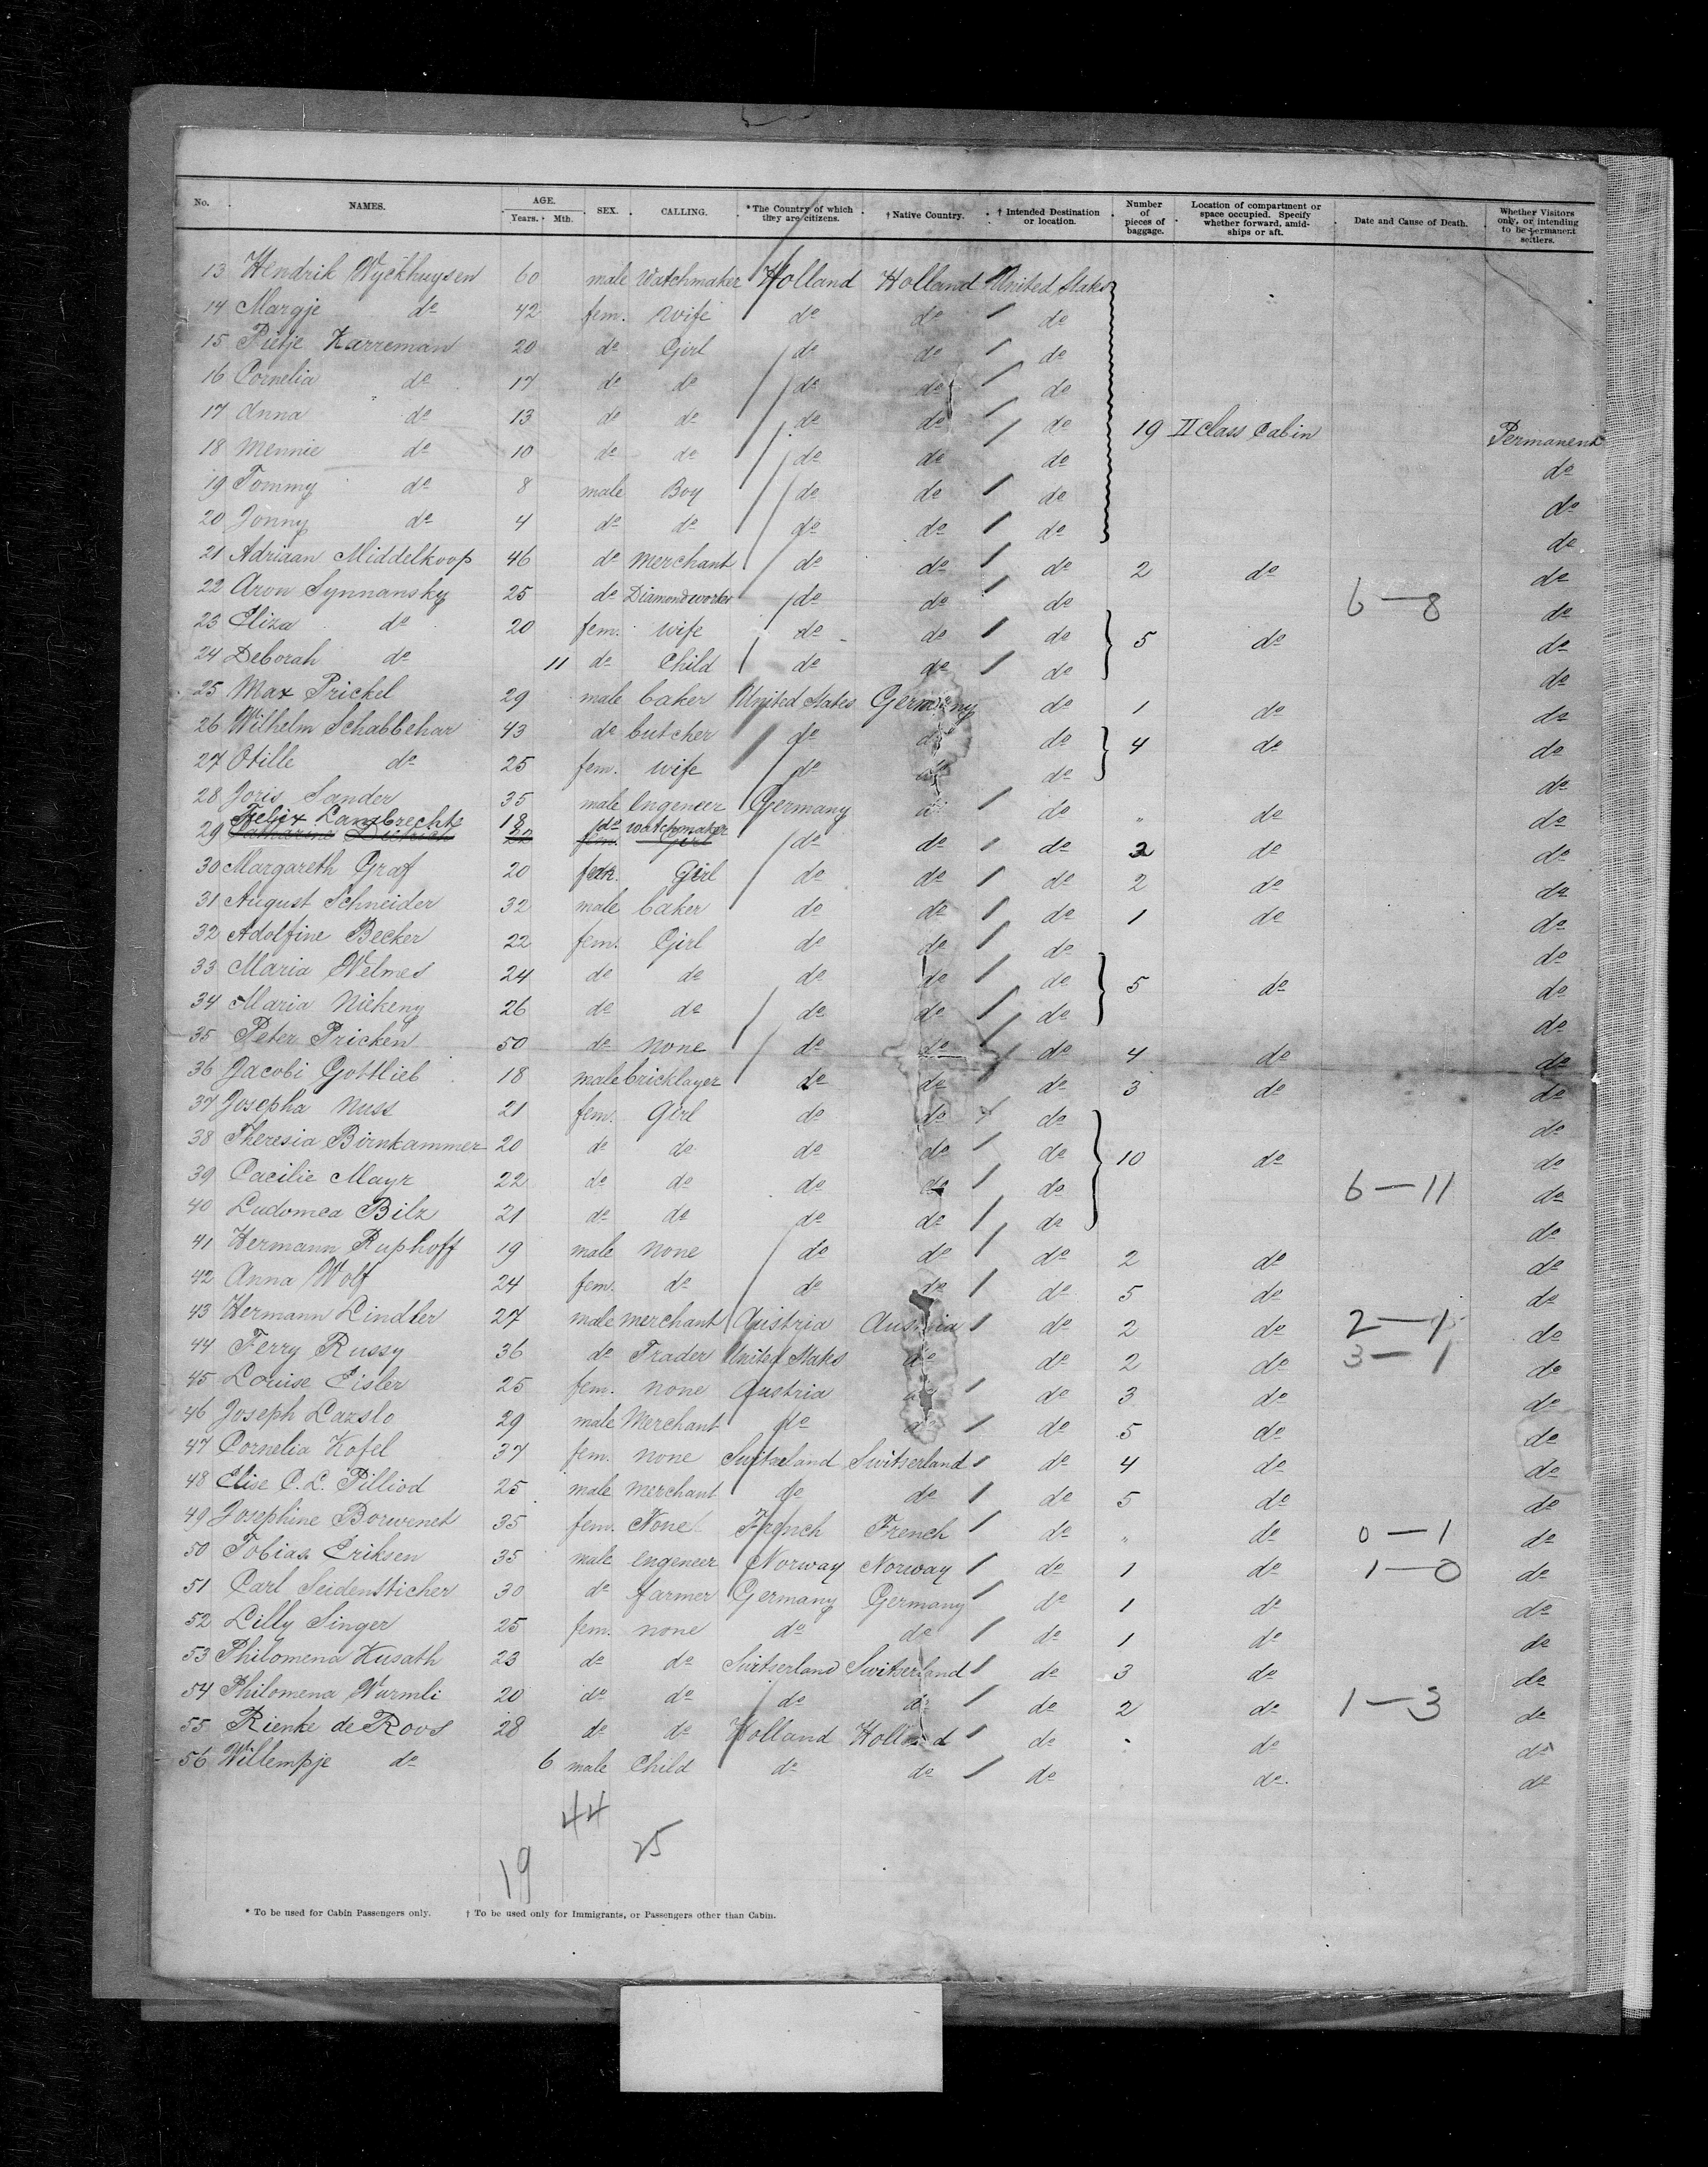 No. NAMES. AGE. Years. Mth. SEX. CALLING. *The Country of which they are citizens. † Native Country. † Intended Destination or location. Number of pieces of baggage. Location of compartment or space occupied. Specify whether forward, amidships or aft. Date and Cause of Death. Whether Visitors only, or intending to be permanent settlers.
13 Hendrik Wyckhuysen 60 male Watchmaker Holland Holland United States
14 Margje do 42 fem. Wife do do do
15 Pietje Karreman 20 do Girl do do do
16 Cornelia do 17 do do do do do
17 Anna do 13 do do do do do 19 II class Cabin Permanent
18 Mennie do 10 do do do do do do
19 Tommy do 8 male Boy do do do do
20 Jonny do 4 do do do do do do
21 Adriaan Middelkoop 46 do Merchant do do do 2 do do
22 Aron Synnansky 25 do Diamondworker do do do 6—8 do
23 Eliza do 20 fem. wife do do do 5 do do
24 Deborah do 11 do Child do do do do
25 Max Prickel 29 male baker United States Germany do 1 do do
26 Wilhelm Schabbehar 43 do butcher do do do 4 do do
27 Otille do 25 fem. wife do do do do
28 Joris Sander 35 male engeneer Germany do do " do do
Felix Lambrechts 18 do watchmaker
29 Catharine Dietrich 22 fem. Girl do do do 2 do do
30 Margareth Graf 20 fem. Girl do do do 2 do do
31 August Schneider 32 male baker do do do 1 do do
32 Adolfine Becker 22 fem. Girl do do do do
33 Maria Welmes 24 do do do do do 5 do do
34 Maria Niekeny 26 do do do do do do
35 Peter Pricken 50 do none do do do 4 do do
36 Jacobi Gottlieb 18 male bricklayer do do do 3 do do
37 Josepha Nuss 21 fem. Girl do do do do
38 Theresia Birnkammer 20 do do do do do 10 do do
39 Cacilie Mayr 22 do do do do do 6—11 do
40 Ludomea Bilz 21 do do do do do do
41 Hermann Ruphoff 19 male none do do do 2 do do
42 Anna Wolf 24 fem. do do do do 5 do do
43 Hermann Lindler 27 male merchant Austria Austria do 2 do 2—1 do
44 Ferry Russy 36 do Trader United States do do 2 do 3—1 do
45 Louise Eisler 25 fem. none Austria do do 3 do do
46 Joseph Lazslo 29 male Merchant do do do 5 do do
47 Cornelia Kofel 37 fem. none Switzeland Switserland do 4 do do
48 Elise C. L. Pilliod 25 male merchant do do do 5 do do
49 Josephine Borwenet 35 fem. None French French do " do 0—1 do
50 Tobias Eriksen 35 male engeneer Norway Norway do 1 do 1—0 do
51 Carl Seidensticher 30 do farmer Germany Germany do 1 do do
52 Lilly Singer 25 fem. none do do do 1 do do
53 Philomena Kusath 23 do do Switserland Switserland do 3 do do
54 Philomena Wurmli 20 do do do do do 2 do 1—3 do
55 Rienke de Roos 28 do do Holland Holland do do do
56 Willempje do 6 male Child do do do do do
44
19 25
* To be used for Cabin Passengers only. † To be used only for Immigrants, or Passengers other than Cabin.